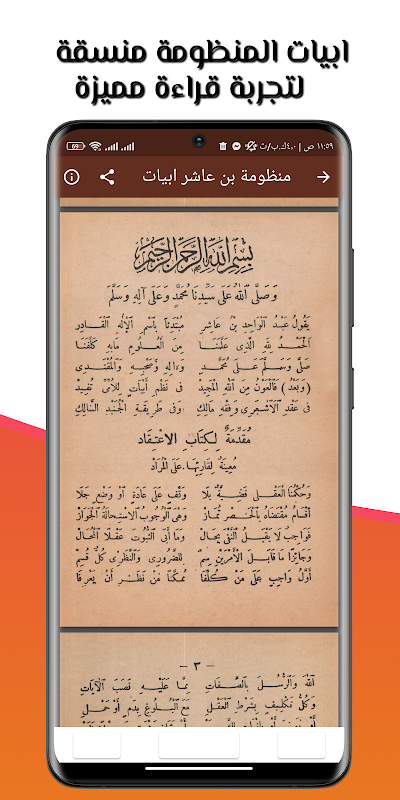 ابيات المنظومة منسقة
لتجربة قراءة مميزة
١١:٥٩ ص | ٤٫٠ك.ب/ث
69
منظومة بن عاشر ابيات
بِسْمِ اللهِ الرَّحْمٰنِ الرَّحِيمِ
وَصَلَّى اللهُ عَلَى سَيِّدِنَا مُحَمَّدٍ وَعَلَى آلِهِ وَسَلَّمَ
يَقُولُ عَبْدُ الْوَاحِدِ بْنُ عَاشِرِ مُبْتَدِئًا بِاسْمِ الْإِلٰهِ الْقَادِرِ
الْحَمْدُ لِلهِ الَّذِي عَلَّمَنَا مِنَ الْعُلُومِ مَا بِهِ كَلَّفَنَا
صَلَّى وَسَلَّمَ عَلَى مُحَمَّدٍ وَءَالِهِ وَصَحْبِهِ وَالْمُقْتَدِى
(وَبَعْدُ) فَالْعَوْنُ مِنَ اللهِ الْمَجِيدِ فِى نَظْمِ أَبْيَاتٍ لِلْأُمِّىِّ تُفِيدُ
فِى عَقْدِ الْأَشْعَرِى وَفِقْهِ مَالِكْ وَفِى طَرِيقَةِ الْجُنَيْدِ السَّالِكْ
مُقَدِّمَةٌ لِكِتَابِ الْاِعْتِقَادِ
مُعِينَةٌ لِقَارِئِهَا عَلَى الْمُرَادِ
وَحُكْمُنَا الْعَقْلِى قَضِيَّةٌ بِلَا وَقْفٍ عَلَى عَادَةٍ أَوْ وَضْعٍ جَلَا
أَقْسَامُ مُقْتَضَاهُ بِالْحَصْرِ تُمَازْ وَهْىَ الْوُجُوبُ الْاِسْتِحَالَةُ الْجَوَازْ
فَوَاجِبٌ لَا يَقْبَلُ النَّفْىَ بِحَالْ وَمَا أَبَى الثُّبُوتَ عَقْلًا الْمُحَالْ
وَجَائِزًا مَا قَابَلَ الْأَمْرَيْنِ سِمْ لِلضَّرُورِى وَالنَّظَرِى كُلٌّ قُسِمْ
أَوَّلُ وَاجِبٍ عَلَى مَنْ كُلِّفَا مُمَكَّنًا مِنْ نَظَرٍ أَنْ يَعْرِفَا
— ٣ —
اللهَ وَالرُّسُلَ بِالصِّفَاتِ مِمَّا عَلَيْهِ نَصَبَ الْآيَاتِ
وَكُلُّ تَكْلِيفٍ بِشَرْطِ الْعَقْلِ مَعَ الْبُلُوغِ بِدَمٍ أَوْ حَمْلِ